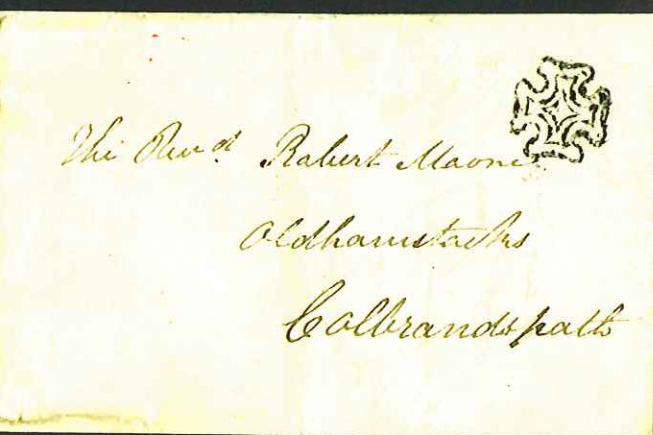 The Revd. Robert Moore
Oldhamstocks
Colbrandspath